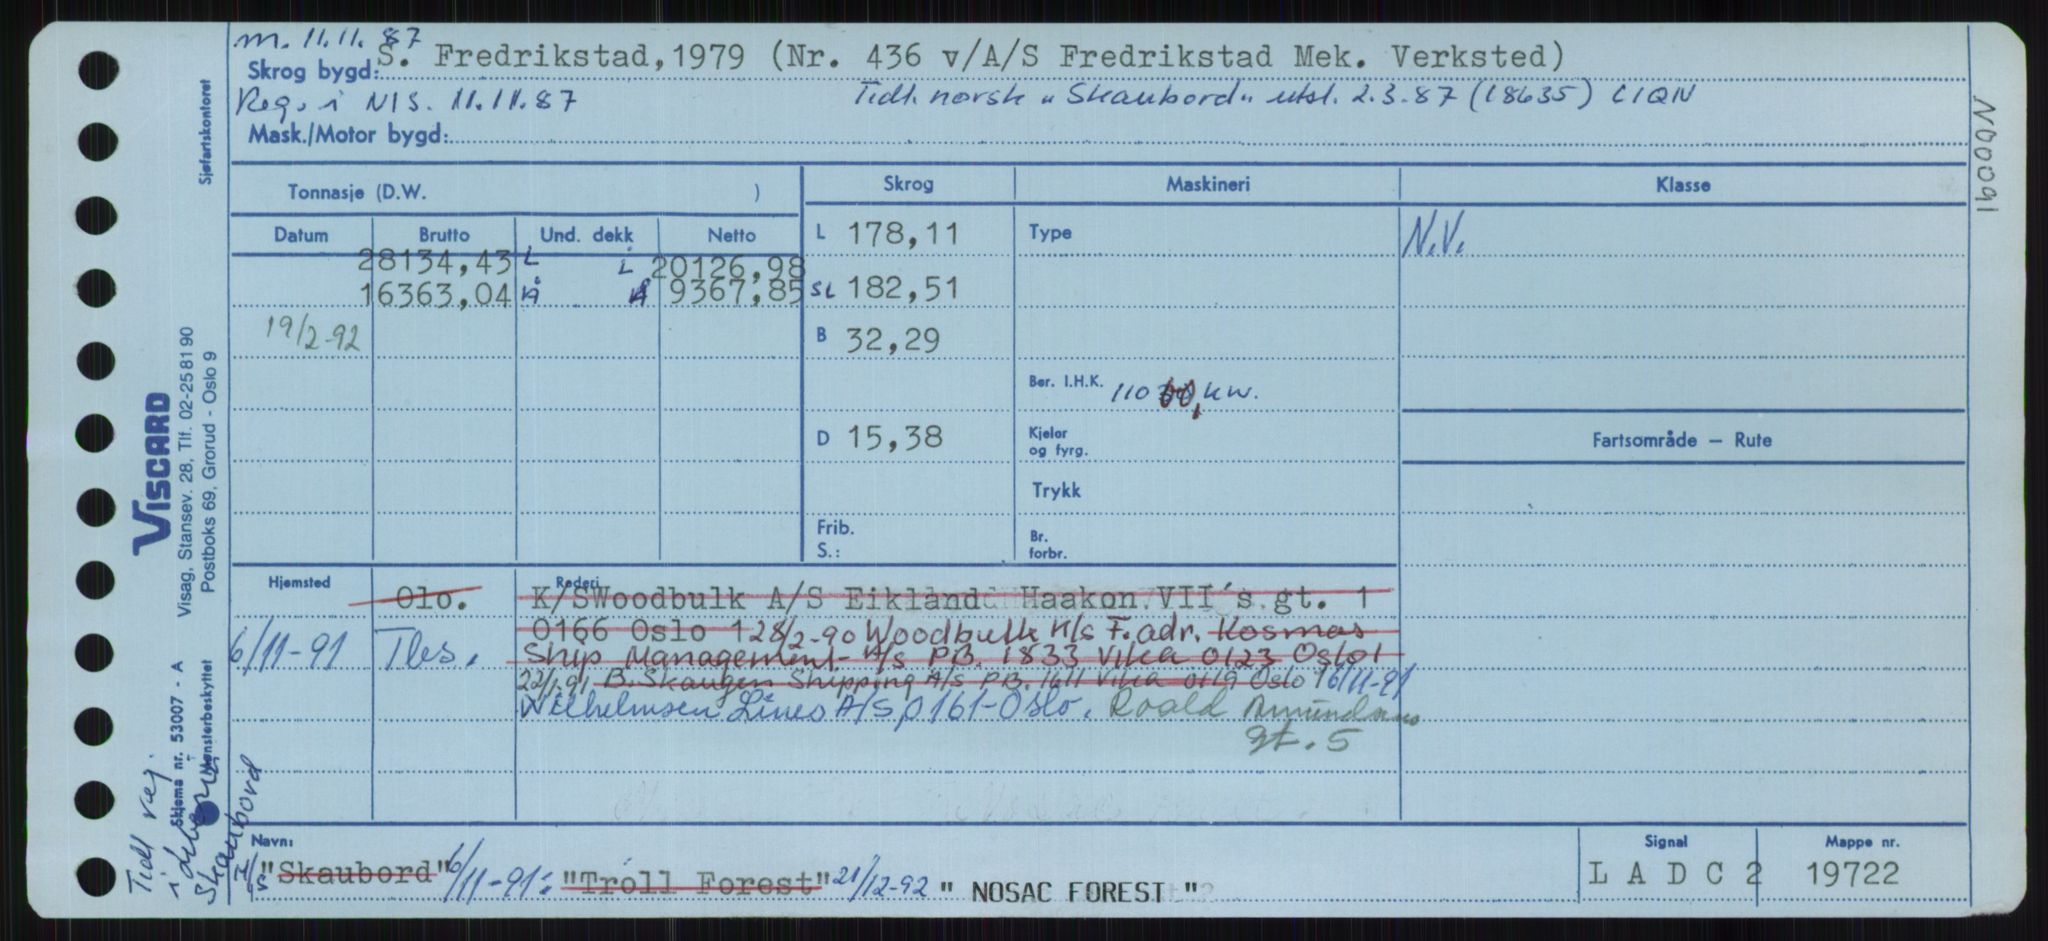 m. 11.11.87
Skrog bygd: S. Fredrikstad, 1979 (Nr. 436 v/A/S Fredrikstad Mek. Verksted)
Reg. i NIS. 11.11.87 Tidl. norsk "Skaubord" utsl. 2.3.87 (18635) LIQN
Mask./Motor bygd:
N00091
Tonnasje (D.W. ) Skrog Maskineri Klasse
Datum Brutto Und. dekk Netto L 178,11 Type N.V.
28134,43 L L 20126,98
16363,04 Å Å 9367,85 SL 182,51
19/2-92 B 32,29
Ber. I.H.K. 110 kw.
D 15,38 Kjeler og fyrg. Fartsområde – Rute
Trykk
Frib. S.: Br. forbr.
Hjemsted Rederi
Olo. K/S Woodbulk A/S Eikland Haakon VII's gt. 1
0166 Oslo 1 28/2-90 Woodbulk K/S F. adr. Kosmos
6/11-91 Tbs. Ship Management A/S P.B. 1833 Vika 0123 Oslo 1
22/1-91 B. Skaugen Shipping A/S P.B. 1611 Vika 0119 Oslo 1 6/11-91
Wilhelmsen Lines A/S, 0161-Oslo. Roald Amundsens
gt. 5
Navn: Signal Mappe nr.
I/S "Skaubord" 6/11-91: "Troll Forest" 21/12-92 " NOSAC FOREST " L A D C 2 19722
Sjøfartskontoret
VISCARD
Visag, Stansev. 28, Tlf. 02-25 81 90
Postboks 69, Grorud - Oslo 9
Skjema nr. 53007 - A
Mønsterbeskyttet
Tidl reg.
i
Skaubord